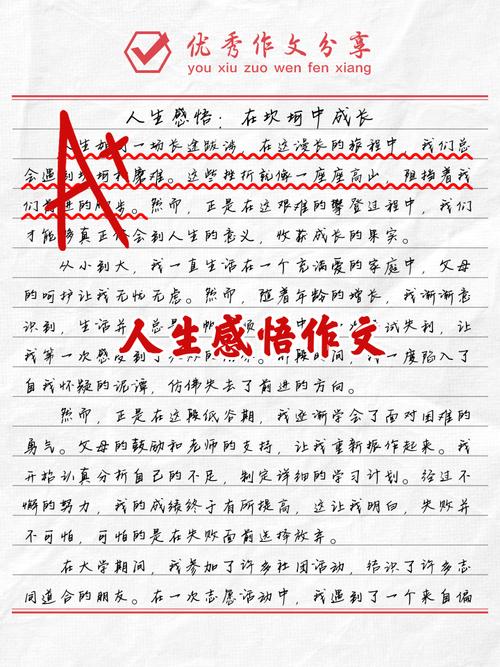 优秀作文分享
you xiu zuo wen fen xiang
人生感悟：在坎坷中成长
A+
人生如一场长途跋涉，在这漫长的旅程中，我们总
会遇到坎坷和磨难。这些挫折就像一座座高山，阻挡着我
们前进的脚步。然而，正是在这艰难的攀登过程中，我们
才能够真正体会到人生的意义，收获成长的果实。
从小到大，我一直生活在一个充满爱的家庭中，父母
的呵护让我无忧无虑。然而，随着年龄的增长，我渐渐意
识到，生活并 总是 帆 顺 中 试失利，让
人生感悟作文
我第一次感受到了 那段时间，我一度陷入了
自我怀疑的泥潭，仿佛失去了前进的方向。
然而，正是在这段低谷期，我逐渐学会了面对困难的
勇气。父母的鼓励和老师的支持，让我重新振作起来。我
开始认真分析自己的不足，制定详细的学习计划。经过不
懈的努力，我的成绩终于有所提高，这让我明白，失败并
不可怕，可怕的是在失败面前选择放弃。
在大学期间，我参加了许多社团活动，结识了许多志
同道合的朋友。在一次志愿活动中，我遇到了一个来自偏